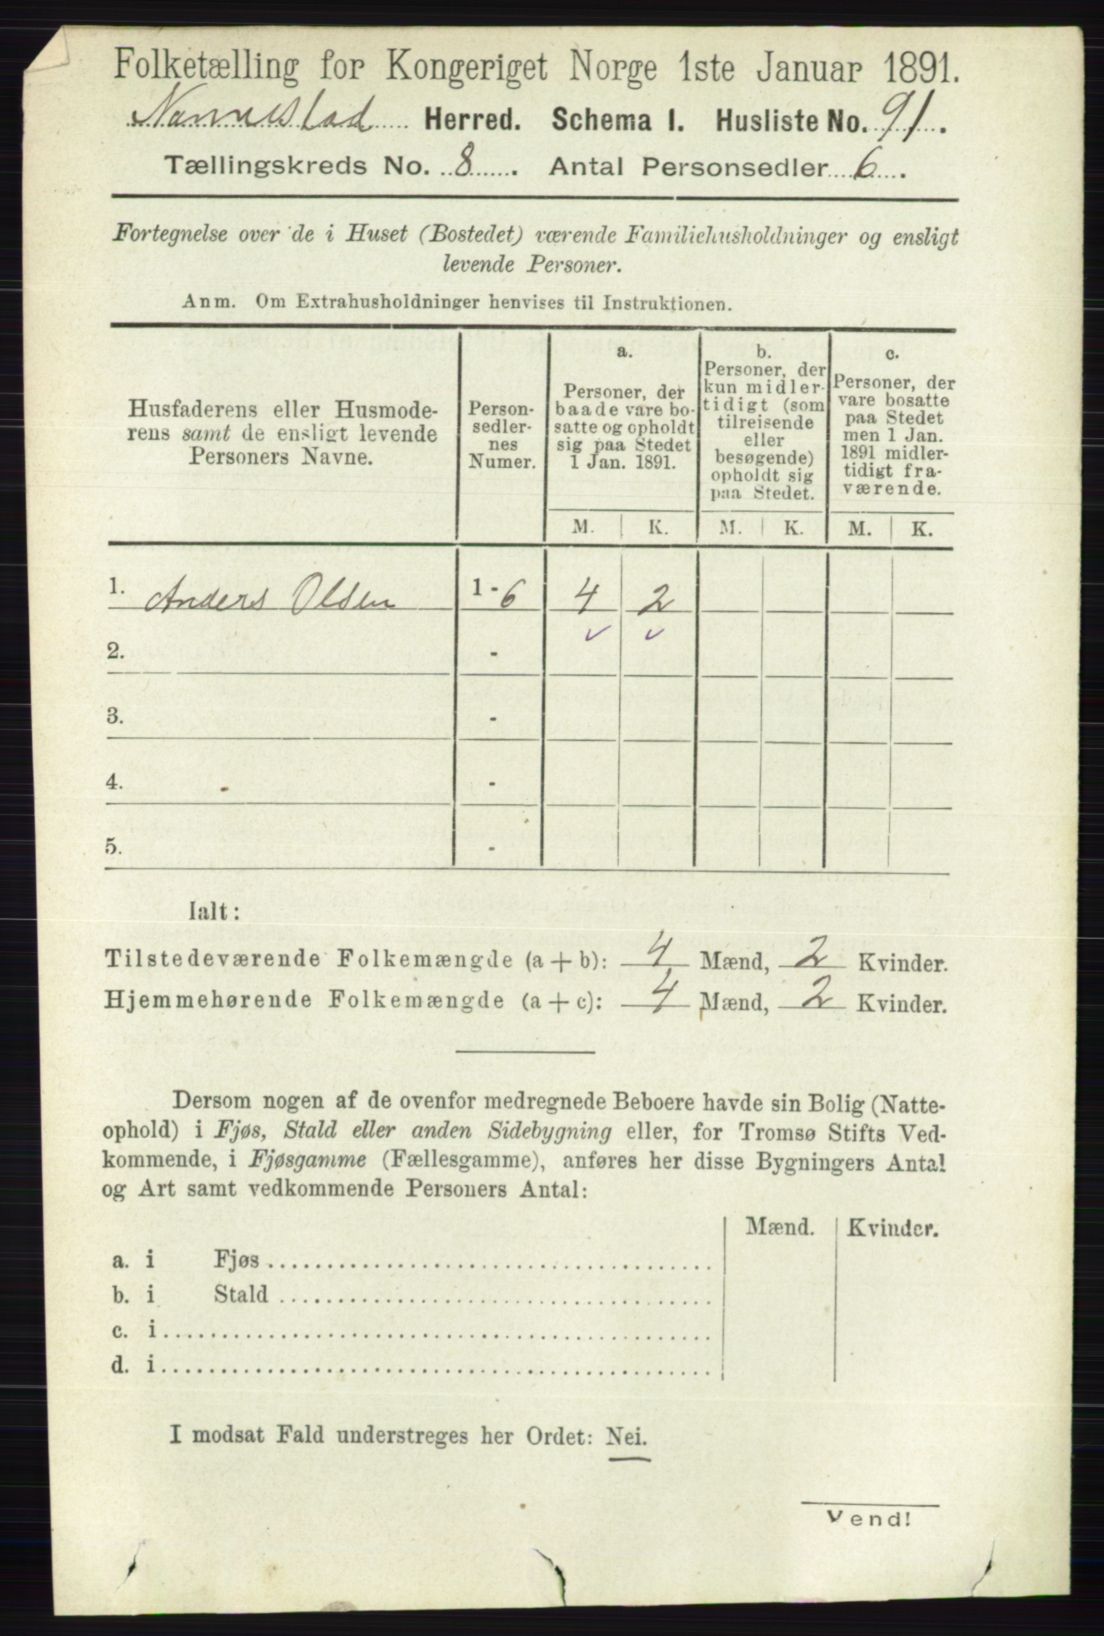 Folketælling for Kongeriget Norge 1ste Januar 1891.
Nannestad Herred. Schema I. Husliste No. 91.
Tællingskreds No. 8. Antal Personsedler 6.
Fortegnelse over de i Huset (Bostedet) værende Familiehusholdninger og ensligt
levende Personer.
Anm. Om Extrahusholdninger henvises til Instruktionen.
Husfaderens eller Husmode-
rens samt de ensligt levende
Personers Navne.
Person-
sedler-
nes
Numer.
a.
Personer, der
baade vare bo-
satte og opholdt
sig paa Stedet
1 Jan. 1891.
b.
Personer, der
kun midler-
tidigt (som
tilreisende
eller
besøgende)
opholdt sig
paa Stedet.
c.
Personer, der
vare bosatte
paa Stedet
men 1 Jan.
1891 midler-
tidigt fra-
værende.
M. K. M. K. M. K.
1. Anders Olsen 1 - 6 4 2
2. -
3. -
4. -
5. -
Ialt:
Tilstedeværende Folkemængde (a + b): 4 Mænd, 2 Kvinder.
Hjemmehørende Folkemængde (a + c): 4 Mænd, 2 Kvinder.
Dersom nogen af de ovenfor medregnede Beboere havde sin Bolig (Natte-
ophold) i Fjøs, Stald eller anden Sidebygning eller, for Tromsø Stifts Ved-
kommende, i Fjøsgamme (Fællesgamme), anføres her disse Bygningers Antal
og Art samt vedkommende Personers Antal:
Mænd. Kvinder.
a. i Fjøs
b. i Stald
c. i
d. i
I modsat Fald understreges her Ordet: Nei.
Vend!